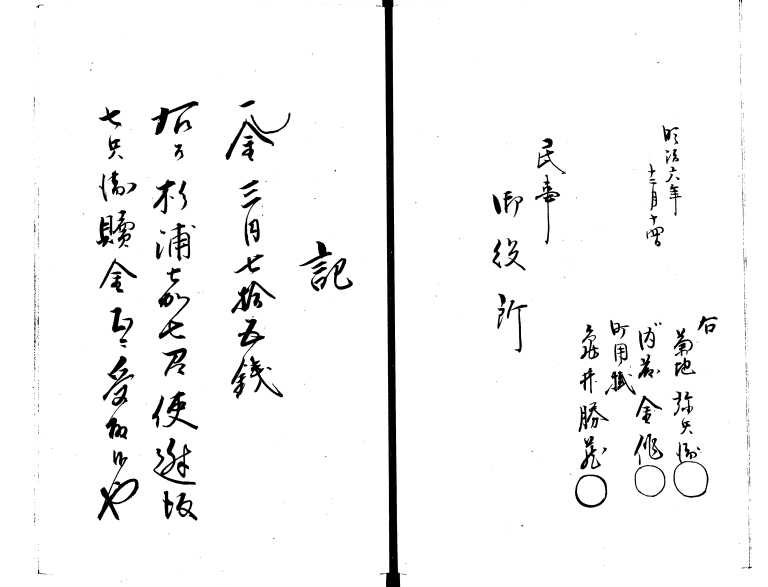 明治六年
十二月十四日
右
菊地弥兵衛
内藤金作
町用掛
亀井勝蔵
民事
御役所
記
一金三円七拾五銭
杉浦七召使
七兵衛贖金正受取候也